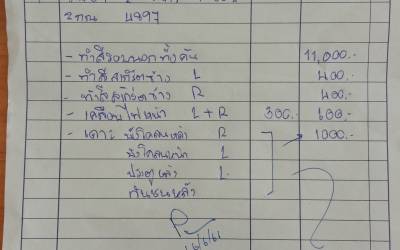 2กณ 4997
- ทำสีรอบนอกทั้งคัน 11,000.-
- ทำสีสเกิร์ตข้าง L 400.-
- ทำสีสเกิร์ตข้าง R 400.-
- เคลือบไฟหน้า L+R 300.- 600.-
- เคาะ บังโคลนหลัง R 1000.-
บังโคลนหน้า L
ประตูหลัง L
กันชนหลัง